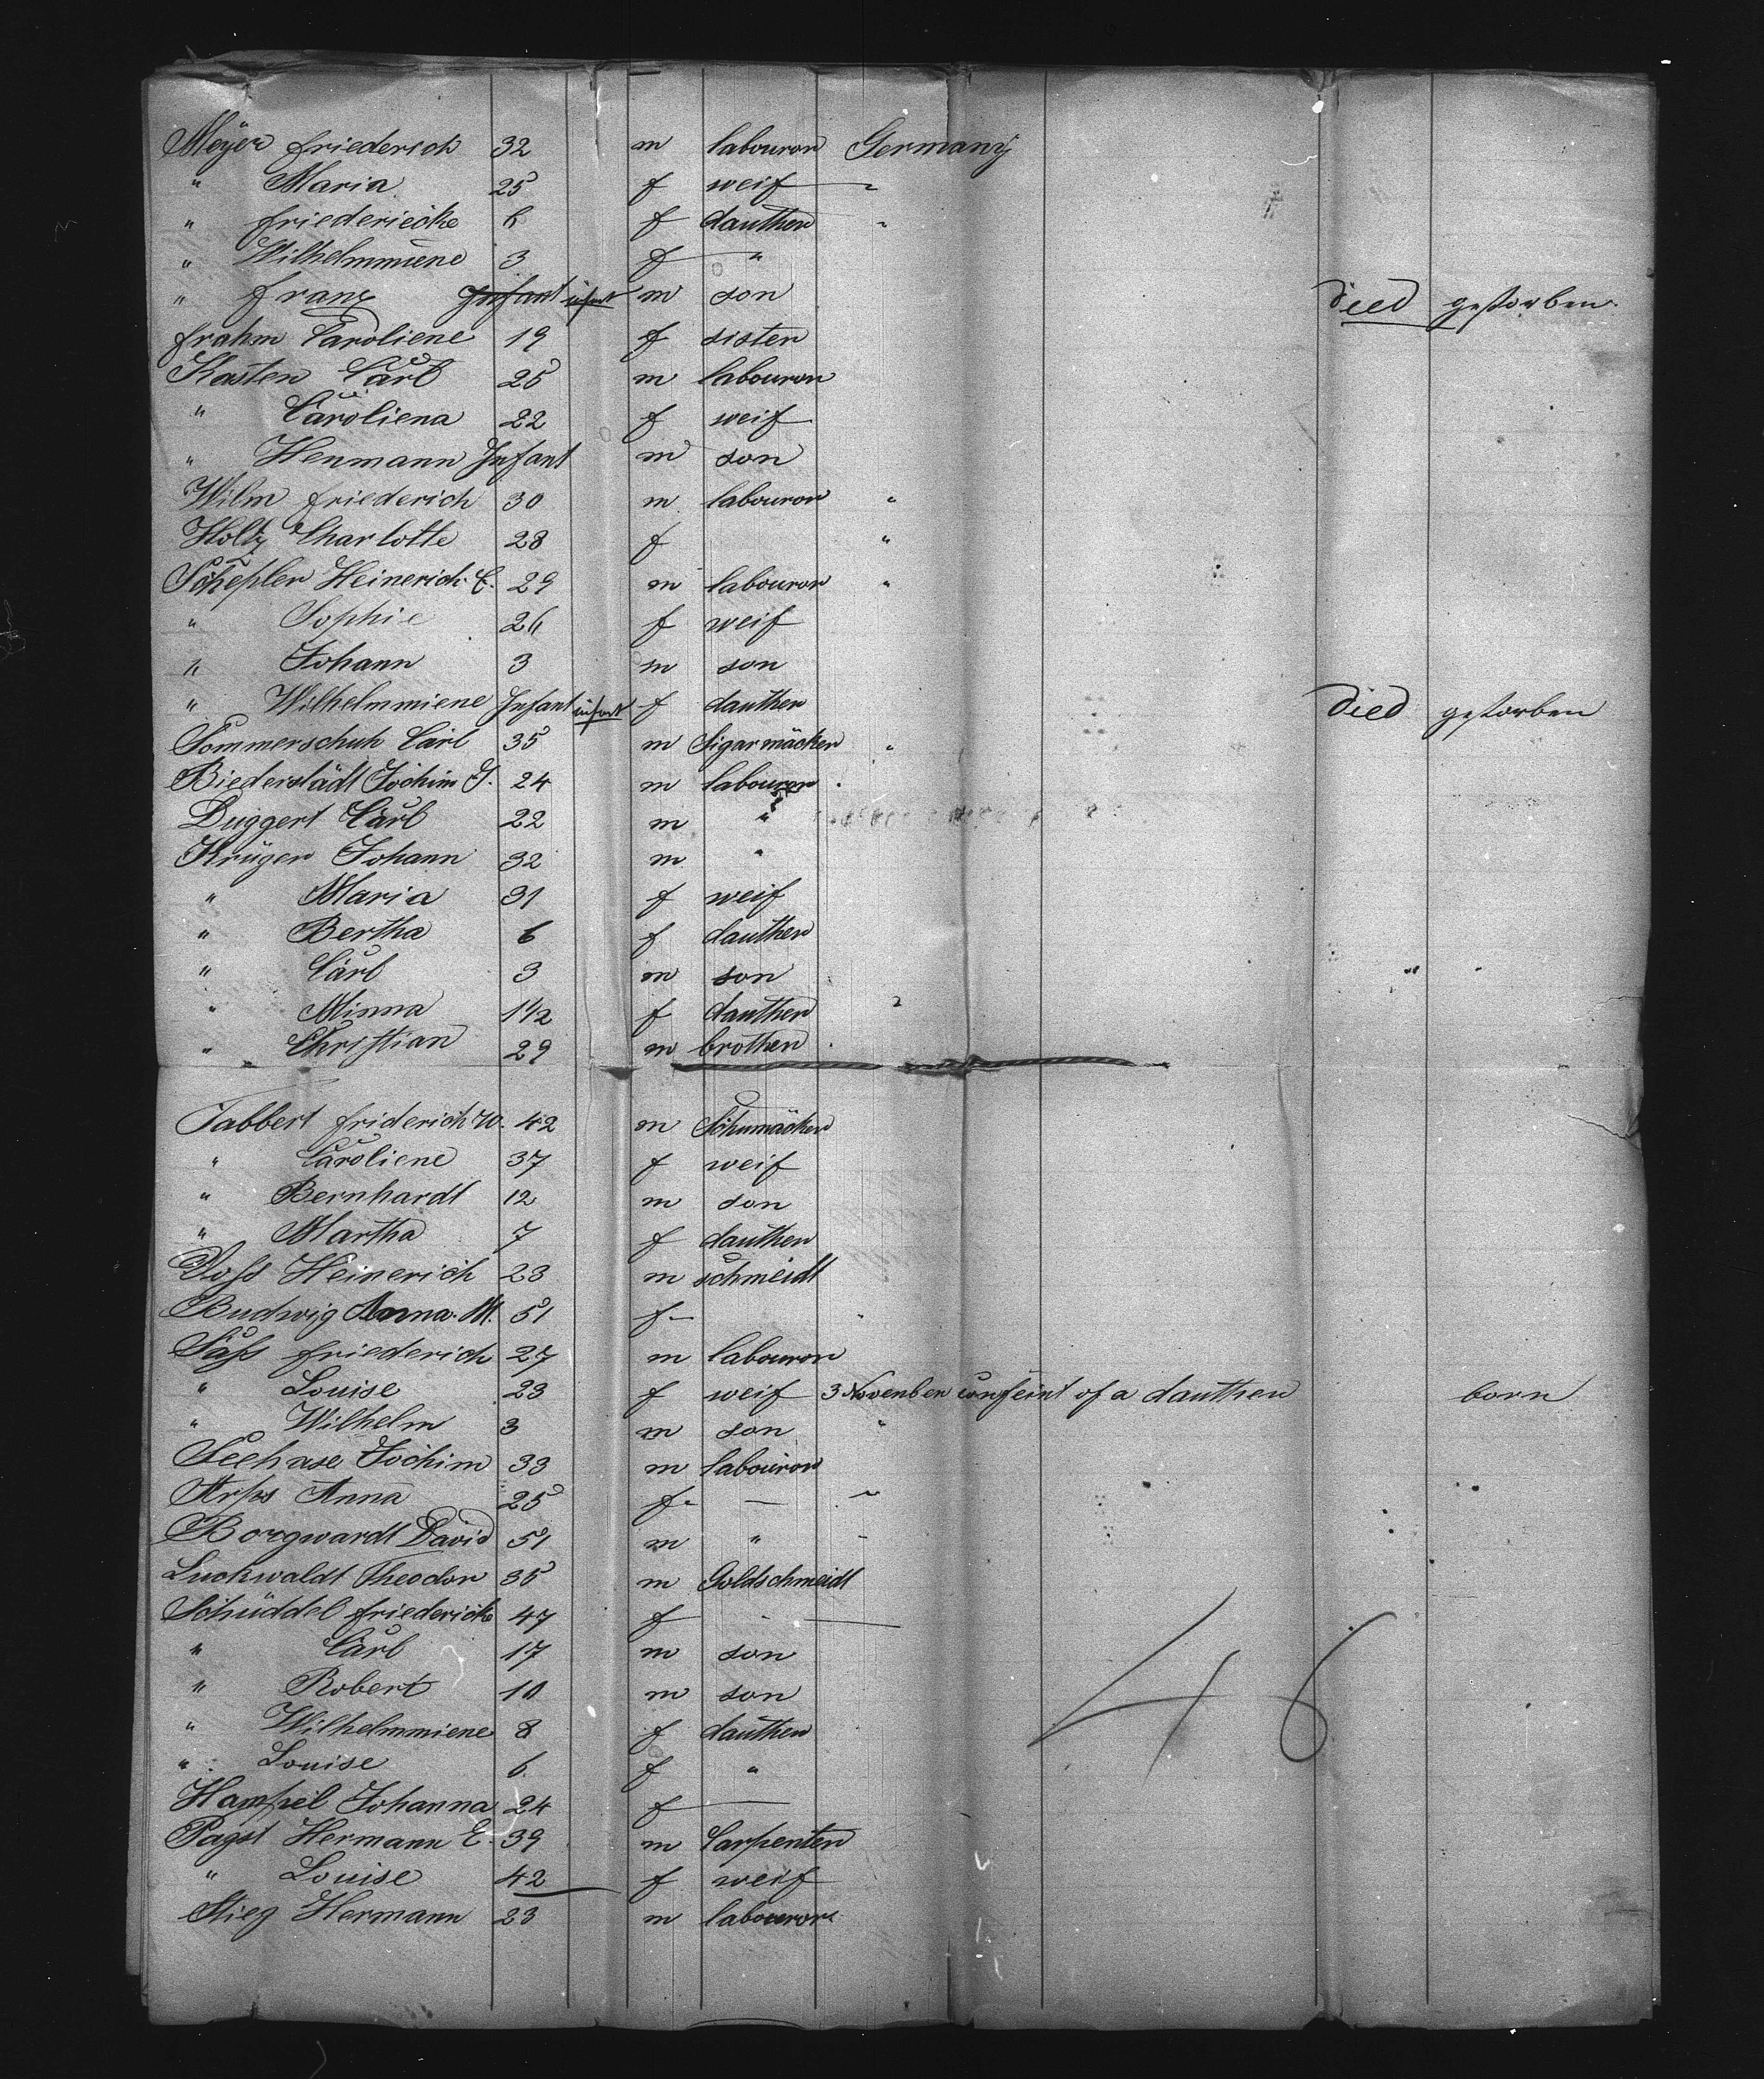 Meÿer friederich 32 m labouror Germanÿ
" Maria 25 f weif "
" friederiecke 6 f dauther "
" Wilhelmmiene 3 f "
" franz Infant infant m son died gestorben
frahm Caroliene 19 f sister
Kasten Carl 25 m labouror
" Caroliena 22 f weif
" Henmann Infant m son
Wilm friederich 30 m labouror "
Holtz Charlotte 28 f "
Schepler Heinerich C. 29 m labouror "
" Sophie 26 f weif
" Johann 3 m son
" Wilhelmmiene Infant infant f dauther died gestorben
Sommerschuh Carl 35 m Sigarmäcker "
Biederstädt Jochim J. 24 m labouror
Duggert Carl 22 m "
Krüger Johann 32 m "
" Maria 31 f weif
" Bertha 6 f dauther
" Carl 3 m son
" Minna 1 1/2 f dauther "
" Christian 29 m brother
Tabbert friderich W. 42 m Schumäcker
" Caroliene 37 f weif
" Bernhardt 12 m son
" Martha 7 f dauther
Voss Heinerich 23 m schmeidt
Budwig Anna M. 51 f
Sass friederich 27 m labouror
" Louise 23 f weif 3 November of a dauther born
" Wilhelm 3 m son "
Seehase Jochim 33 m labouror
Arps Anna 25 f — "
Borgwardt David 51 m "
Luckwaldt Theodor 35 m Goldschmeidt
Schüddel friedericke 47 f —
" Carl 17 m son
" Robert 10 m son
" Wilhelmmiene 8 f dauther
" Louise 6 f "
Hampel Johanna 24 f —
Pagst Hermann E. 39 m Carpenter
" Louise 42 f weif
Stieg Hermann 23 m labouror
46